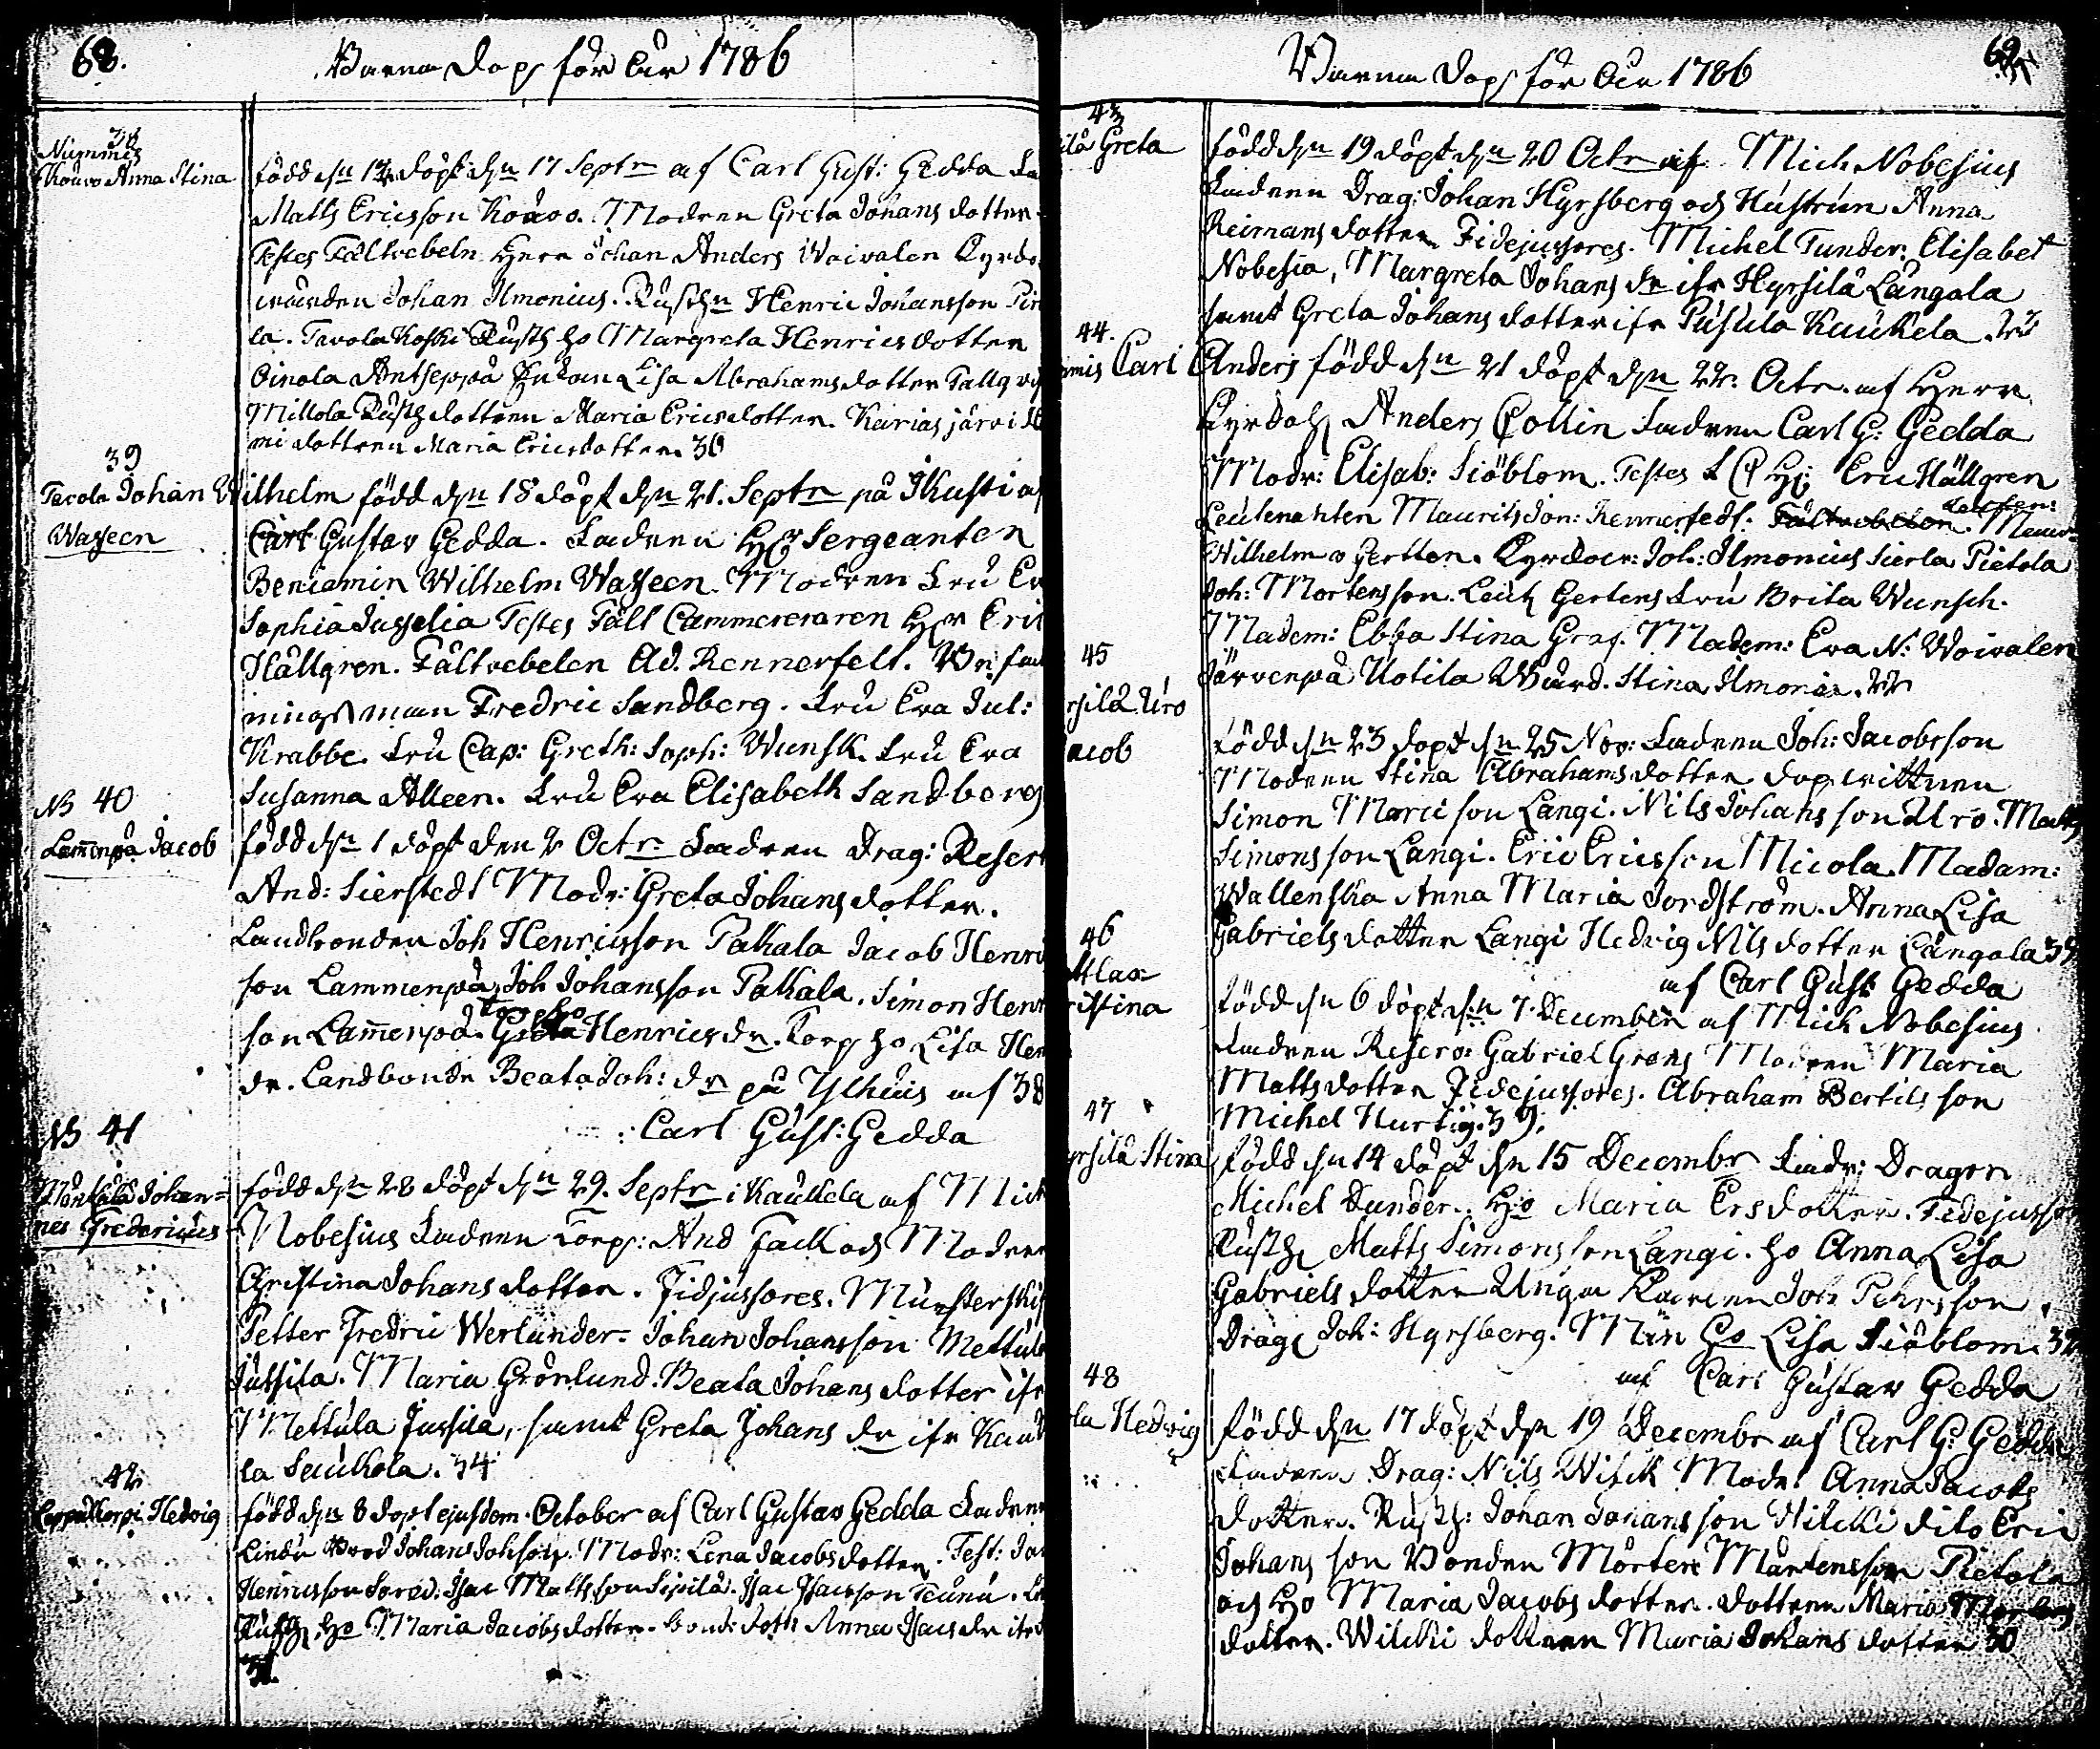 68.
Barna Dop för År 1786
38
Nummis
Kouvo Anna Stina
född dn 12 döpt dn 17 Septr af Carl Gust: Gedda Fa
Matts Ericsson Kouvo. Modren Greta Johans dotter
Testes Fältvebeln Herr Johan Anders Woivalen Kyrdo
wärden Johan Ilmonius. Rusth:n Henric Johansson Pir
la. Tavola Koski Rusth ho Margreta Henrics dotter
Oinola Antseppä Lisa Abrahams dotter Tallqvi
Millola Rusth dottren Maria Erics dotter. Karias järvi
mi dottren Maria Ericsdotter. 36
39
Tacola Johan Wilhelm född dn 18 döpt dn 21. Septr på Ikusti af
Waseen
Carl Gustav Gedda. Fadren Hr Sergeanten
Beniamin Wilhelm Waseen. Modren Fru Ev
Sophia Juselia Testes Fält Cammereraren Hr Eric
Hällgren. Fältvebelen Ad. Rennerfelt. Be
nings man Fredric Sandberg. Fru Eva Jul:
Krabbe. Fru Cap: Greth: Soph: Wunsk. Fru Eva
Susanna Alleen. Fru Eva Elisabeth Sandberg
NB 40
Lammenpä Jacob
född dn 1 döpt den 2 Octr Fadren Drag: Reserv
And: Sierstedt Modr: Greta Johans dotter.
Landbonden Joh Henricsson Pakala Jacob Henri
son Lammenpä, Joh Johansson Pakala. Simon Henr
son Lammenpä. Torp ho Greta Henrics dr. Torp ho Lisa Hen
dr. Landbondr Beata Joh: dr på Ylhuis af 38
Carl Gust: Gedda
NB 41
Johan=
nes Fredericus
född dn 28 döpt dn 29. Septr i Kaukela af Mich
Nobesius Fadren Torp: And Fack och Modren
Christina Johans dotter. Fidjussores. Munsterski
Petter Fredric Werlunder= Johan Johansson Mettula
Jussila. Maria Grönlund. Beata Johans dotter ifr
Mettula Jussila, samt Greta Johans dr ifr Kauk
la Saukola. 34
42
Lappatkorpi Hedvig
född dn 8 döpt ejusdem October af Carl Gustav Gedda Fadren
Johans Johson. Modr: Lena Jacobs dotter. Test: Ja
Henricsson Isac Matts son Sipilä. Isac Isacsson
Rusth. ho Maria Jacobs dotter. Bond: dottr Anna Isacs dr
31.
69
Barna Dop för År 1786
43
ilä Greta
född dn 19 döpt dn 20 Octr af Mich Nobesius
Fadren Drag: Johan Hyrsberg och Hustrun Anna
Reimans dotter. Fidejussores. Michel Tunder. Elisabet
Nobesia, Margreta Johans dr ifr Hyrsilä Långala
samt Greta Johans dotter ifr Pusula Kaukela. 23
44.
mis Carl Anders född dn 21 döpt dn 22. Octr. af Herr
Anders Collin Fadren Carl G: Gedda
Modr: Elisab: Siöblom. Testes Eric Hällgren
Leutenanten Maurits Jon: Rennerfedt. Fältvebelen.
Wilhelm v Gertten. Kyrdvär: Joh: Ilmonius Sierla Pietola
Joh: Mortensson. Leut Gertens Fru Brita Wunsch.
Madem: Ebba Stina Graf. Madem: Eva N: Woivalen
Järvenpä Uotila Wärd. Stina Ilmonia. 22
45
rsilä Uro
acob
född dn 23 döpt dn 25 Nov: Fadren Joh: Jacobsson
Modren Stina Abrahams dotter dop wittnen
Simon Marci son Langi. Nils Johans son Uro. Matts
Simons son Langi. Eric Ericsson Micola. Madam:
Wallenska Anna Maria Anna Lisa
Gabriels dotter Langi Hedvig Nils dotter Långala 39
af Carl Gust Gedda
46
ttlax
ristina
född dn 6 döpt dn 7 December af Mich Nobesius
Fadren Reserv: Gabriel Grons Modren Maria
Matts dotter Fidejussores. Abraham Bertils son
Michel Hurtig. 39.
47
yrsilä Stina
född dn 14 döpt dn 15 Decembr Fadr: Dragon
Michel Dunder. Ho Maria Ers dotter. Fidejusso
Rusth Matts Simons son Langi. ho Anna Lisa
Gabriels dotter Unga Karlen Joh Pehrsson.
Drag Joh: Hyrsberg. Män Ho Lisa Siöblom. 32
af Carl Gustav Gedda
48
la Hedvig
född dn 17 döpt dn 19 Decembr af Carl G: Gedda
Fadren Drag: Nils Witik Modr: Anna Jacobs
dotter. Rusth: Johan Johans son Hilcki dito Eric
Johans son Bonden Mårten Mårtensson Pietola
och ho Maria Jacobs dotter. dottren Maria Mortens
dotter. Wilcki dottren Maria Johans dotter 30